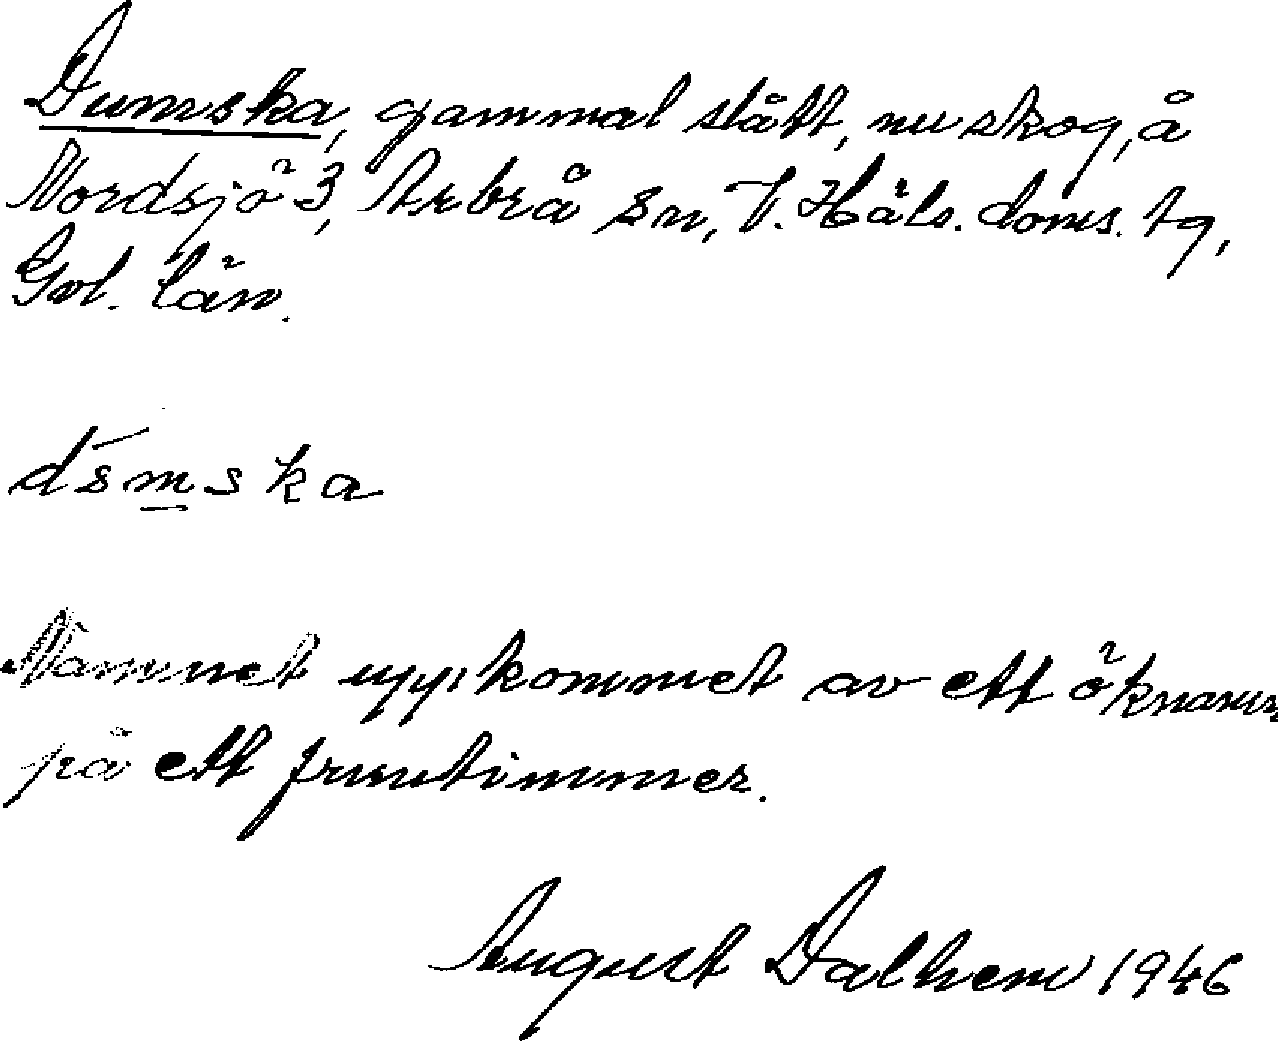 Dumska, gammal slått, nu skog, å
Nordsjö 3, Arbrå sn, V. Häls. doms. tg,
Gvl. län.
Namnet uppkommet av ett öknamn
på ett fruntimmer.
August Dalhem 1946